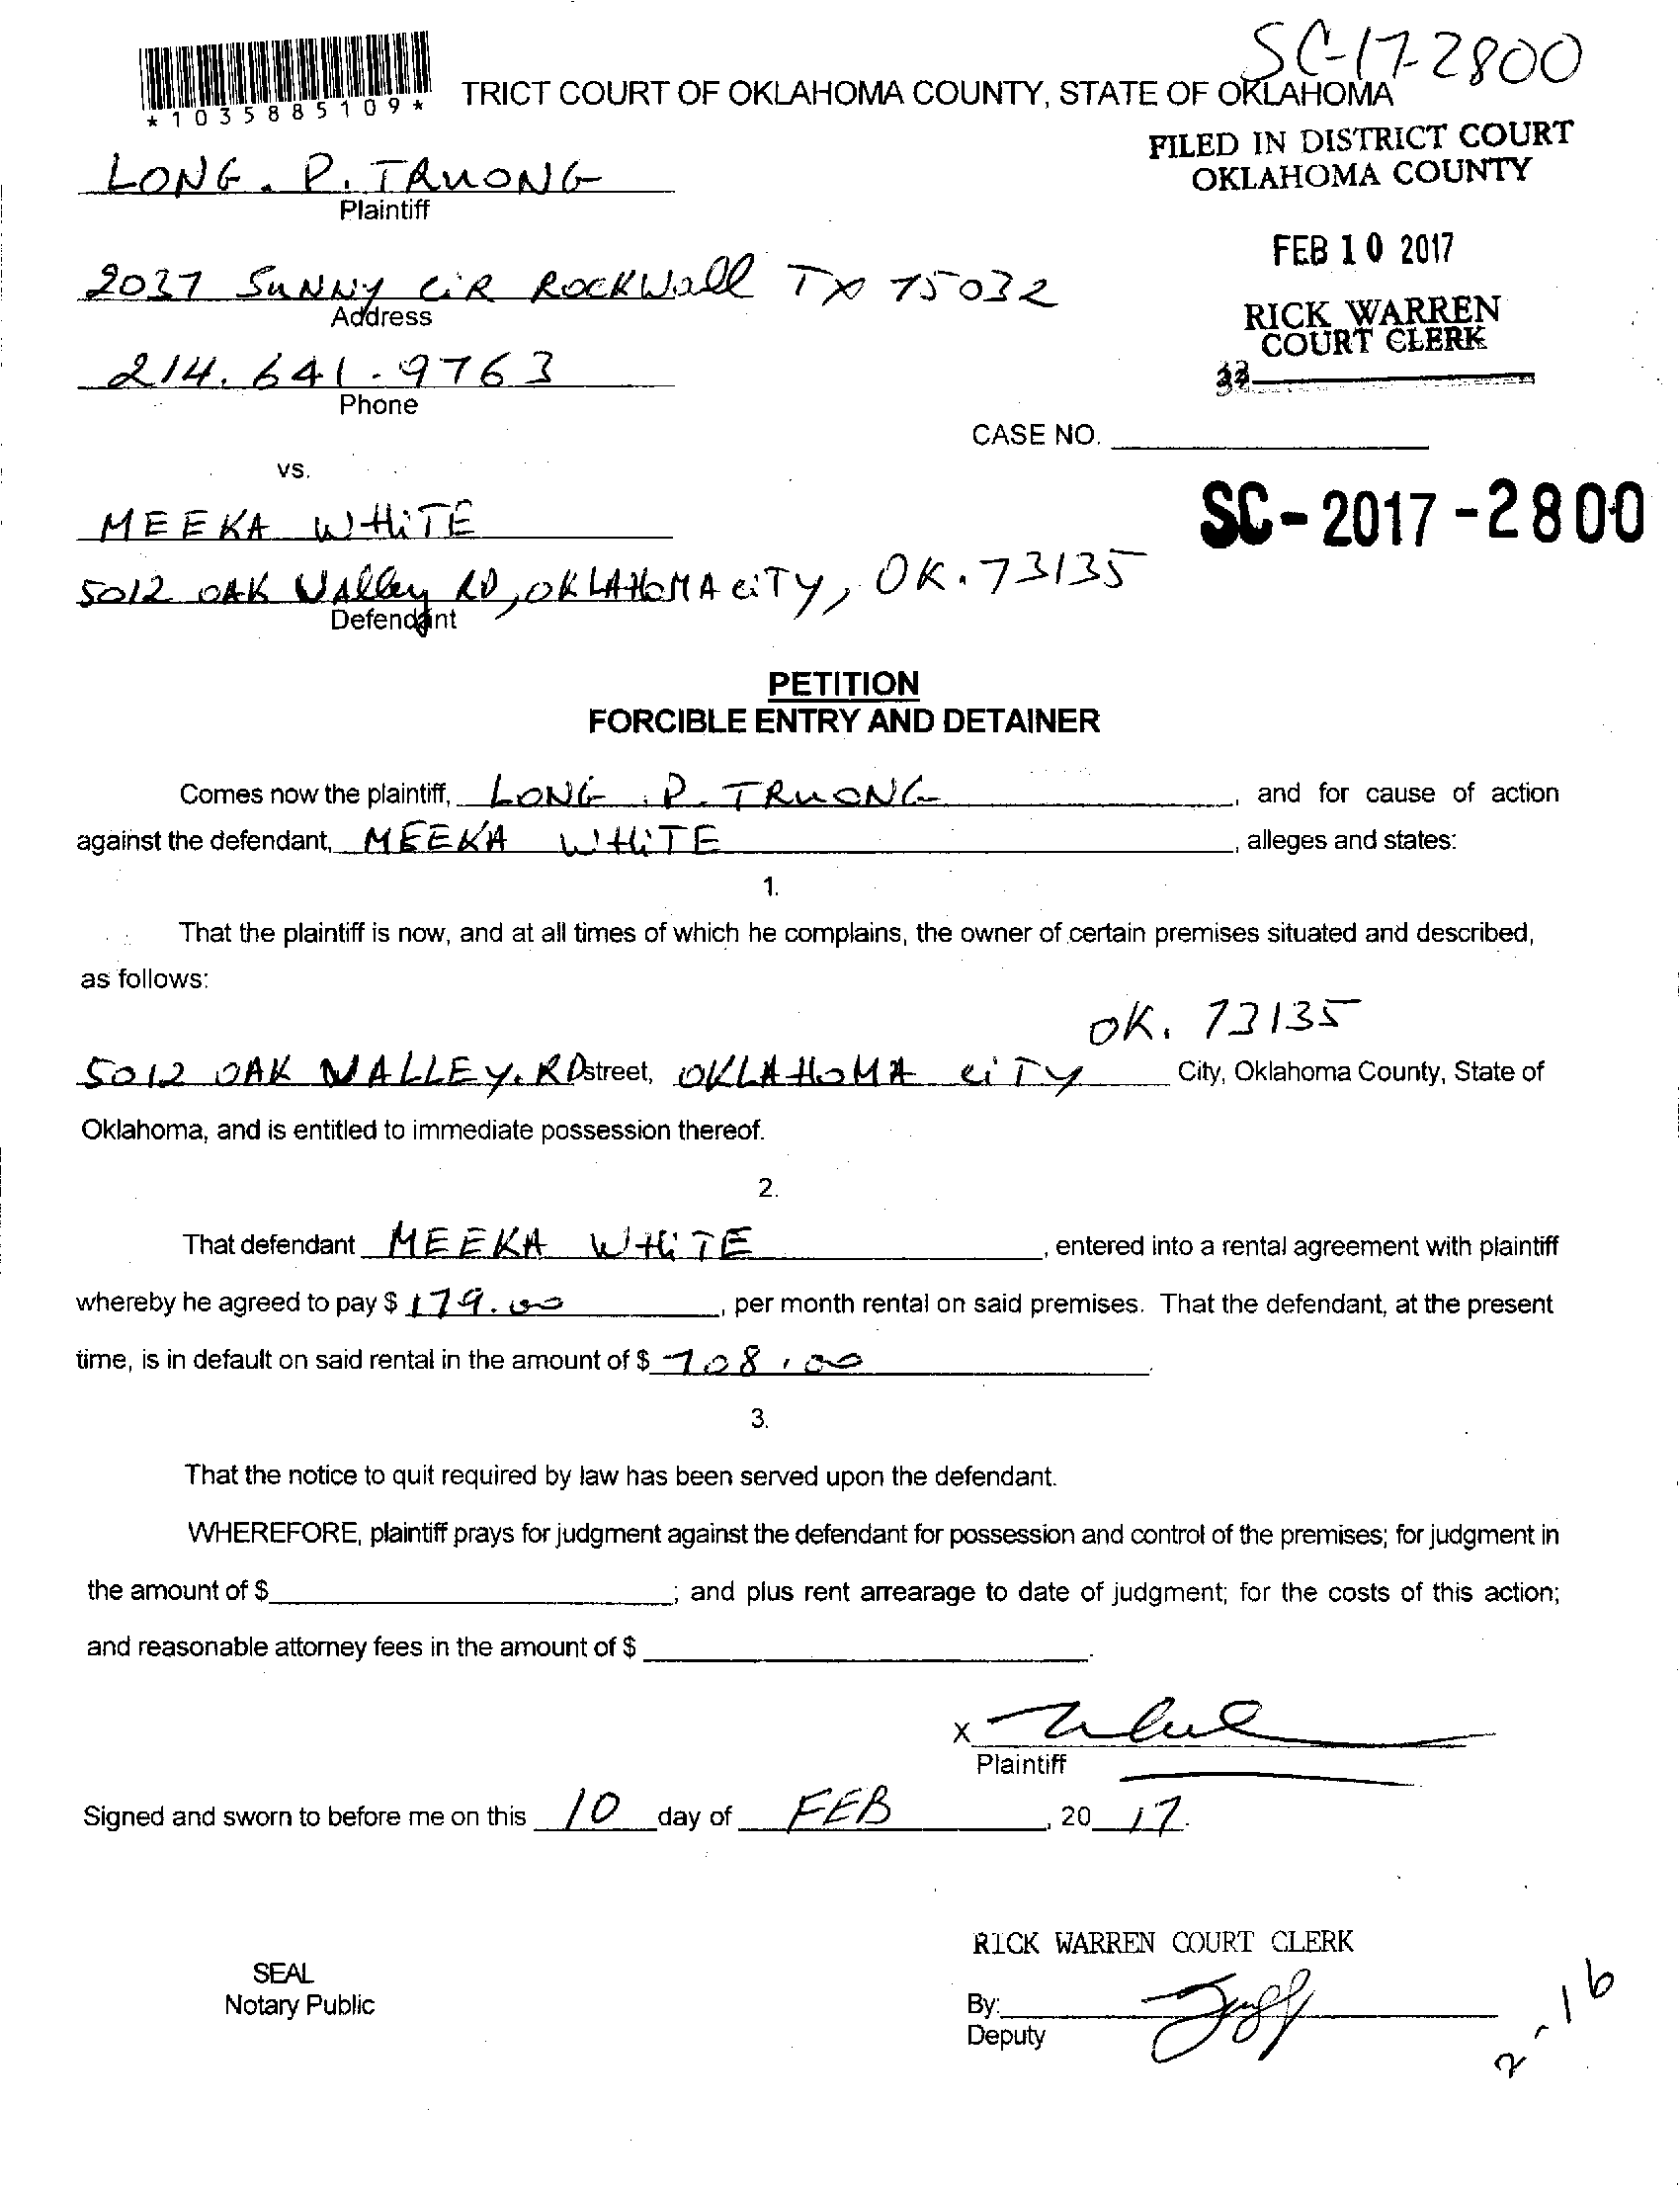 SC-17-2800
*1035885109*
TRICT COURT OF OKLAHOMA COUNTY, STATE OF OKLAHOMA
FILED IN DISTRICT COURT
OKLAHOMA COUNTY
LONG. P. TRUONG
Plaintiff
FEB 10 2017
2037 SUNNY CIR ROCKWall TX 75032
Address
RICK WARREN
COURT CLERK
214.641-9763
Phone
CASE NO.
vs.
SC-2017-2800
MEEKA WHITE
5012 OAK VAlley RD, OKLAHOMA CITY, OK. 73135
Defendant
PETITION
FORCIBLE ENTRY AND DETAINER
Comes now the plaintiff, LONG P. TRUONG, and for cause of action
against the defendant, MEEKA WHITE, alleges and states:
1.
That the plaintiff is now, and at all times of which he complains, the owner of certain premises situated and described,
as follows:
OK. 73135
5012 OAK VALLEY. RD street, OKLAHOMA CITY City, Oklahoma County, State of
Oklahoma, and is entitled to immediate possession thereof.
2.
That defendant MEEKA WHITE, entered into a rental agreement with plaintiff
whereby he agreed to pay $ 179.00, per month rental on said premises. That the defendant, at the present
time, is in default on said rental in the amount of $ 708.00.
3.
That the notice to quit required by law has been served upon the defendant.
WHEREFORE, plaintiff prays for judgment against the defendant for possession and control of the premises; for judgment in
the amount of $; and plus rent arrearage to date of judgment; for the costs of this action;
and reasonable attorney fees in the amount of $.
X
Plaintiff
Signed and sworn to before me on this 10 day of FEB, 20 17.
RICK WARREN COURT CLERK
SEAL
Notary Public
By:
Deputy
2-16